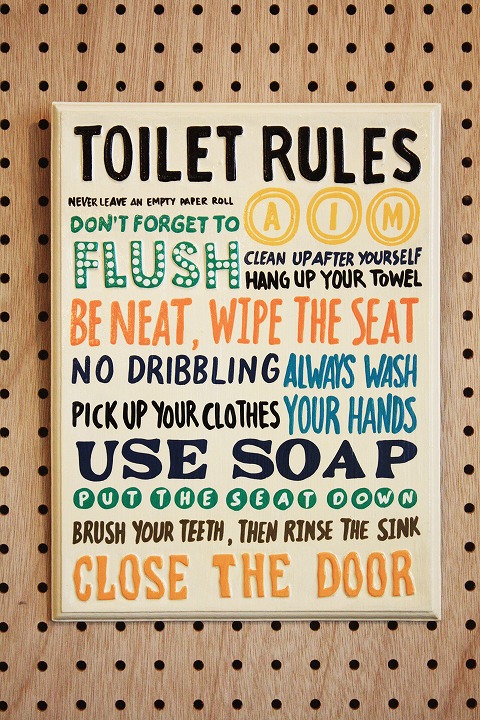 TOILET RULES
NEVER LEAVE AN EMPTY PAPER ROLL
DON'T FORGET TO
FLUSH
AIM
CLEAN UP AFTER YOURSELF
HANG UP YOUR TOWEL
BE NEAT, WIPE THE SEAT
NO DRIBBLING
PICK UP YOUR CLOTHES
ALWAYS WASH
YOUR HANDS
USE SOAP
PUT THE SEAT DOWN
BRUSH YOUR TEETH, THEN RINSE THE SINK
CLOSE THE DOOR